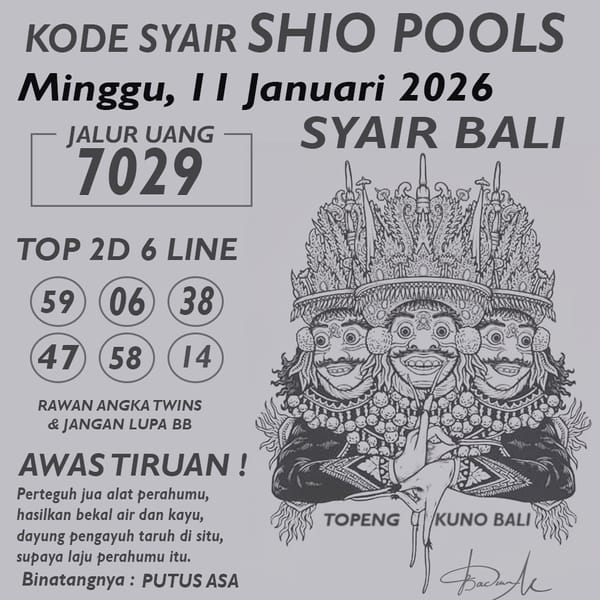 KODE SYAIR SHIO POOLS
Minggu, 11 Januari 2026
JALUR UANG
7029
SYAIR BALI
TOP 2D 6 LINE
59 06 38
47 58 14
RAWAN ANGKA TWINS
& JANGAN LUPA BB
AWAS TIRUAN !
Perteguh jua alat perahumu,
hasilkan bekal air dan kayu,
dayung pengayuh taruh di situ,
supaya laju perahumu itu.
Binatangnya : PUTUS ASA
TOPENG KUNO BALI